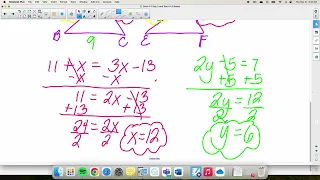 B 9 C E F
11 + x = 3x - 13
- x - x
11 = 2x - 13
+ 13 + 13
24 = 2x
2 2
x = 12
2y - 5 = 7
+ 5 + 5
2y = 12
2 2
y = 6